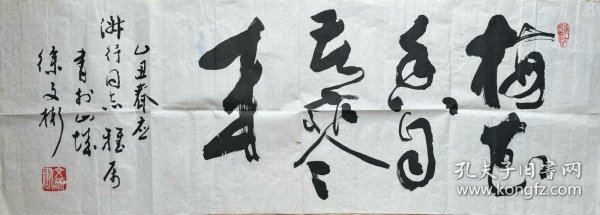 梅花
香自
苦寒
来
乙丑春应
行同志雅属
书於山城
徐文彬
孔夫子旧书网
www.kongfz.com